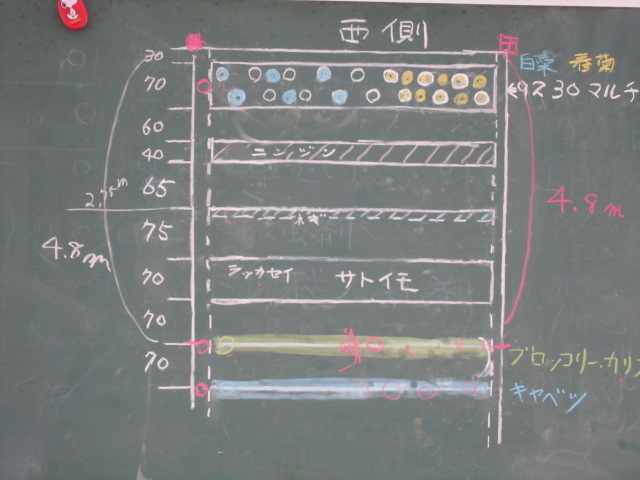 西側
30
白菜 春菊
70
9230マルチ
60
ニンジン
40
65
2.75m
4.8m
ネギ
75
4.8m
ラッカセイ サトイモ
70
70
ブロッコリー.カリフ
70
キャベツ